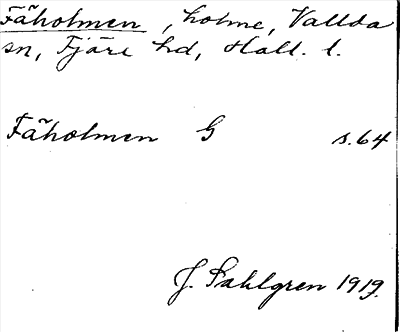 Fåholmen, holme, Vallda
sn, Fjäre hd, Hall. l.
Fåholmen G s.64
J. Sahlgren 1919.